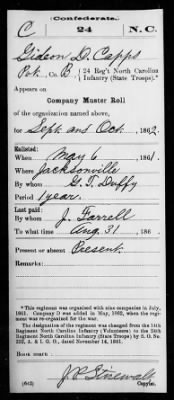 Confederate.
C 24 N.C.
Gideon D. Capps
Pvt., Co. B, 24 Reg't North Carolina
Infantry (State Troops).*
Appears on
Company Muster Roll
of the organization named above,
for Sept and Oct, 1862.
Enlisted:
When May 6, 1861.
Where Jacksonville
By whom G. T. Duffy
Period 1 year.
Last paid:
By whom J. Farrell
To what time Aug. 31, 186
Present or absent Present
Remarks:
*This regiment was organized with nine companies in July,
1861. Company D was added in May, 1862, when the regi-
ment was re-organized for the war.
The designation of the regiment was changed from the 14th
Regiment North Carolina Infantry (Volunteers) to the 24th
Regiment North Carolina Infantry (State Troops) by S. O. No.
222, A. & I. G. O., dated November 14, 1861.
Book mark:
(642)
Copyist.